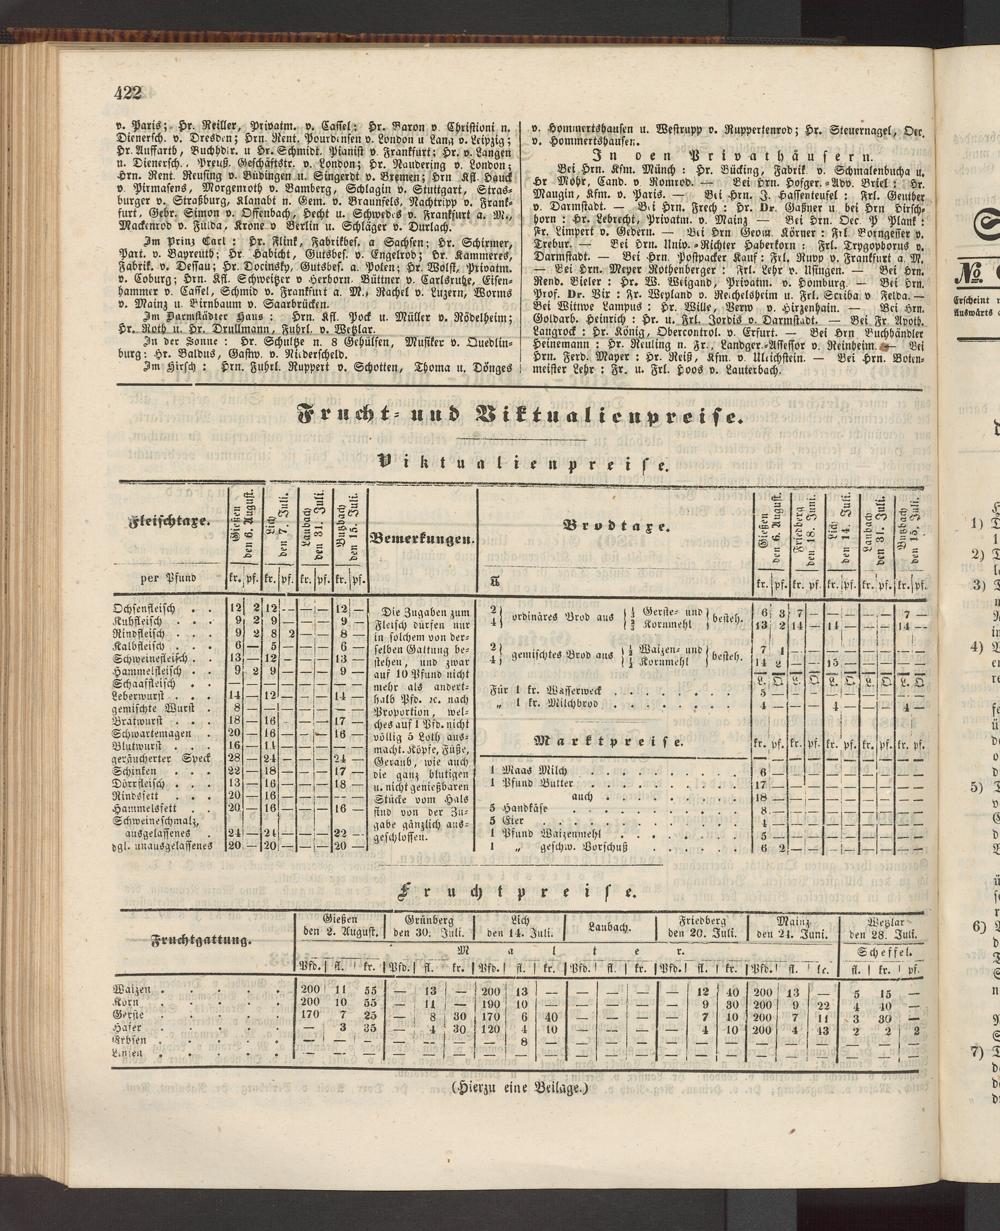 422
v. Paris; Hr. Reiller, Privatm. v. Cassel: Hr. Baron v Christioni n.
Dienersch. v. Dresden; Hrn. Rent. Pourdensen v. London u Lanz v. Leipzig;
Hr. Auffarth, Buchhdlr. u Hr. Schmidt. Pianist v Frankfurt; Hr. v. Langen
u. Dienersch., Preuß. Geschäftstr. v. London; Hr. Maubering v. London;
Hrn. Rent. Reusing v. Büdingen u. Singerdt v. Bremen; Hrn Kfl. Hauck
v. Pirmasens, Morgenroth v. Bamberg, Schlagin v. Stuttgart, Stras-
burger v. Straßburg, Klanabt n. Gem. v. Braunfels, Nachtripp v. Frank-
furt, Gebr. Simon v. Offenbach, Hecht u. Schwedes v. Frankfurt a. M.,
Mackenrod v. Fulda, Krone v Berlin u. Schläger v. Durlach.
Im Prinz Carl: Hr. Flink, Fabrikbes. a Sachsen; Hr. Schirmer,
Part. v. Bayreuth; Hr Habicht, Gutsbes. v. Engelrod; Hr. Kammeres,
Fabrik. v. Dessau; Hr. Docinsky, Gutsbes. a. Polen; Hr. Wolff, Privatm.
v. Coburg; Hrn. Kfl. Schweißer v Herborn, Büttner v. Carlsruhe, Eisen-
hammer v. Cassel, Schmid v. Frankfurt a. M., Rachel v. Luzern, Worms
v. Mainz u. Birnbaum v. Saarbrücken.
Im Darmstädter Haus: Hrn. Kfl. Pock u. Müller v. Rödelheim;
Hr. Roth u. Hr. Drullmann, Fuhrl. v. Wetzlar.
In der Sonne: Hr. Schultze n. 8 Gehülfen, Musiker v. Quedlin-
burg: Hr. Baldus, Gastw. v. Niederscheld.
Im Hirsch: Hrn. Fuhrl. Ruppert v. Schotten, Thoma u. Dönges
v. Hommertshausen u. Westrupp v. Ruppertenrod; Hr. Steuernagel, Oec.
v. Hommertshausen.
In den Privathäusern.
Bei Hrn. Kfm. Münch: Hr. Bücking, Fabrik v. Schmalenbucha u.
Hr Mohr, Cand. v. Romrod. — Bei Hrn. Hofger.-Adv. Briel: Hr.
Maugin, Kfm. v. Paris. — Bei Hrn. J. Hassenteufel: Frl. Geuther
v. Darmstadt. — Bei Hrn. Frech: Hr. Dr. Gaßner u. bei Hrn Hirsch-
horn: Hr. Lebrecht, Privatm. v. Mainz — Bei Hrn. Oec. P Plank:
Fr. Limpert v. Gedern. — Bei Hrn Geom. Körner: Frl. Borngesser v.
Trebur. — Bei Hrn. Univ.-Richter Haberkorn: Frl. Trygophorus v.
Darmstadt. — Bei Hrn. Postpacker Kauf: Frl. Rupp v. Frankfurt a. M.
— Bei Hrn. Meyer Rothenberger: Frl. Lehr v. Usingen. — Bei Hrn.
Rend. Bieler: Hr. W. Weigand, Privatm. v. Homburg — Bei Hrn.
Prof. Dr. Vix: Fr. Weyland v. Reichelsheim u. Frl. Scriba v Felda. —
Bei Wittwe Lampus: Hr. Wille, Verw v. Hirzenhain. — Bei Hrn.
Goldarb. Heinrich: Hr. u. Frl. Jordis v. Darmstadt. — Bei Fr Apoth.
Langrock: Hr. König, Obercontrol. v. Erfurt. — Bei Hrn Buchhändler
Heinemann: Hr. Reuling n. Fr., Landger.-Assessor v. Reinheim. — Bei
Hrn. Ferd. Mayer: Hr. Reiß, Kfm. v. Ulrichstein. — Bei Hrn. Boten-
meister Lehr: Fr. u. Frl. Loos v. Lauterbach.
Frucht- und Viktualienpreise.
Viktualienpreise.
Fleischtaxe. Gießen den 6. August. Lich den 7. Juli. Laubach den 31. Juli. Butzbach den 15. Juli. Bemerkungen.
per Pfund kr. pf. kr. pf. kr. pf. kr. pf.
Ochsenfleisch . . 12 2 12 — — — 12 —
Kuhfleisch . . . 9 2 9 — — — 9 —
Rindfleisch . . . 9 2 8 2 — — 8 —
Kalbfleisch . . . 6 — 5 — — — 6 —
Schweinefleisch . . 13 — 12 — — — 13 —
Hammelfleisch . . 9 2 9 — — — 9 —
Schaaffleisch . . — — — — — — — —
Leberwurst . . . 14 — 12 — — — 14 —
gemischte Wurst . 8 — — — — — — —
Bratwurst . . . 18 — 16 — — — 17 —
Schwartemagen . . 20 — 16 — — — 16 —
Blutwurst . . . 16 — 11 — — — — —
geräucherter Speck 28 — 24 — — — 24 —
Schinken . . . 22 — 18 — — — 17 —
Dörrfleisch . . . 13 — 16 — — — 18 —
Rindsfett . . . 20 — 16 — — — — —
Hammelsfett . . 20 — 16 — — — 16 —
Schweineschmalz,
ausgelassenes . 24 — 24 — — — 22 —
dgl. unausgelassenes 20 — 20 — — — 20 —
Die Zugaben zum
Fleisch dürfen nur
in solchem von der-
selben Gattung be-
stehen, und zwar
auf 10 Pfund nicht
mehr als andert-
halb Pfd. ꝛc. nach
Proportion, wel-
ches auf 1 Pfd. nicht
völlig 5 Loth aus-
macht. Köpfe, Füße,
Geraub, wie auch
die ganz blutigen
u. nicht genießbaren
Stücke vom Hals
sind von der Zu-
gabe gänzlich aus-
geschlossen.
Brodtaxe. Gießen den 6. August. Friedberg den 18. Juni. Lich den 14. Juli. Laubach den 31. Juli. Butzbach den 15. Juli.
℔ kr. pf. kr. pf. kr. pf. kr. pf. kr. pf.
2 ordinäres Brod aus Gerste- und besteh. 6 3 7 — — — — — 7 —
4 Kornmehl 13 2 14 — 14 — — — 14 —
2 gemischtes Brod aus Waizen- und besteh. 7 1 — — — — — — — —
4 Kornmehl 14 2 — — 15 — — — — —
L. Q. L. Q. L. Q. L. Q. L. Q.
Für 1 kr. Wasserweck . . . 5 — — — — — — — — —
„ 1 kr. Milchbrod . . . 4 — — — 4 — — — 4 —
Marktpreise. kr. pf. kr. pf. kr. pf. kr. pf. kr. pf.
1 Maas Milch . . . 6 — — — — — — — — —
1 Pfund Butter . . . 17 — — — — — — — — —
auch . . . 18 — — — — — — — — —
5 Handkäse . . . 8 — — — — — — — — —
5 Eier . . . 4 — — — — — — — — —
1 Pfund Waizenmehl . . . 5 — — — — — — — — —
1 „ geschw. Vorschuß . . . 6 2 — — — — — — — —
Fruchtpreise.
Fruchtgattung. Gießen den 2. August. Grünberg den 30. Juli. Lich den 14. Juli. Laubach. Friedberg den 20. Juli. Mainz den 21. Juni. Wetzlar den 28. Juli.
Malter. Scheffel.
Pfd. fl. kr. Pfd. fl. kr. Pfd. fl. kr. Pfd. fl. kr. Pfd. fl. kr. Pfd. fl. kr. fl. kr. pf.
Waizen . . . 200 11 55 — 13 — 200 13 — — — — — 12 40 200 13 — 5 15 —
Korn . . . 200 10 55 — 11 — 190 10 — — — — — 9 30 200 9 22 4 40 —
Gerste . . . 170 7 25 — 8 30 170 6 40 — — — — 7 10 200 7 11 3 30 —
Hafer . . . — 3 35 — 4 30 120 4 10 — — — — 4 10 200 4 43 2 2 2
Erbsen . . . — — — — — — — 8 — — — — — — — — — — — — —
Linsen . . . — — — — — — — — — — — — — — — — — — — — —
(Hierzu eine Beilage.)
№
Erscheint
Auswärts
1)
2)
3)
4)
5)
6)
7)